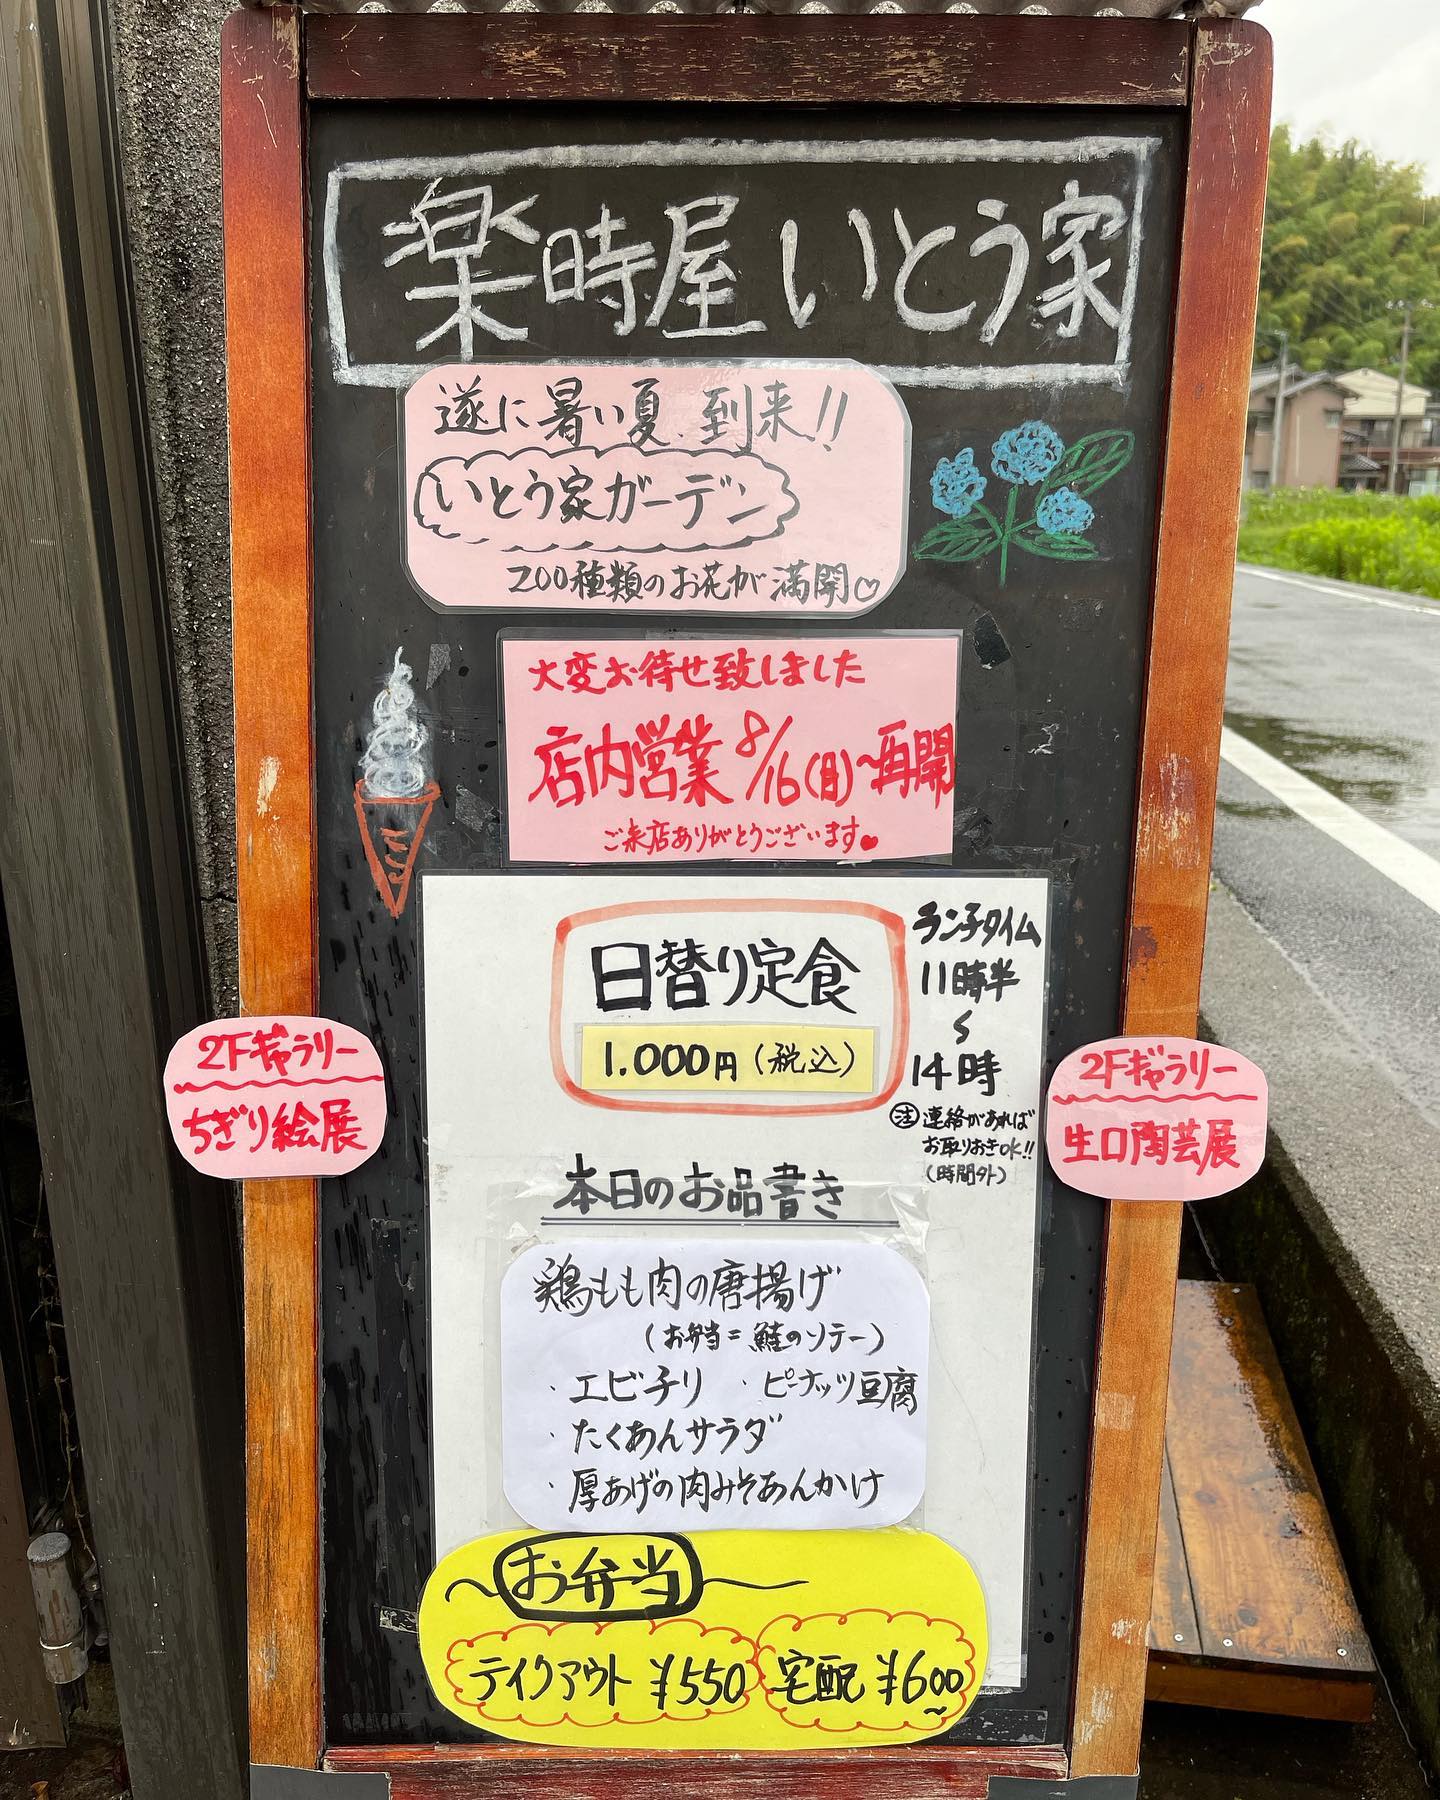 楽時屋 いとう家
遂に暑い夏、到来!!
いとう家ガーデン
200種類のお花が満開♡
大変お待せ致しました
店内営業 8/16(日)~再開
ご来店ありがとうございます♥
日替り定食
1.000円(税込)
ランチタイム
11時半
~
14時
注 連絡があれば
お取りおきOK!!
(時間外)
2Fギャラリー
ちぎり絵展
2Fギャラリー
生口陶芸展
本日のお品書き
鶏もも肉の唐揚げ
(お弁当=鮭のソテー)
・エビチリ ・ピーナッツ豆腐
・たくあんサラダ
・厚あげの肉みそあんかけ
~お弁当
テイクアウト ¥550 宅配 ¥600~